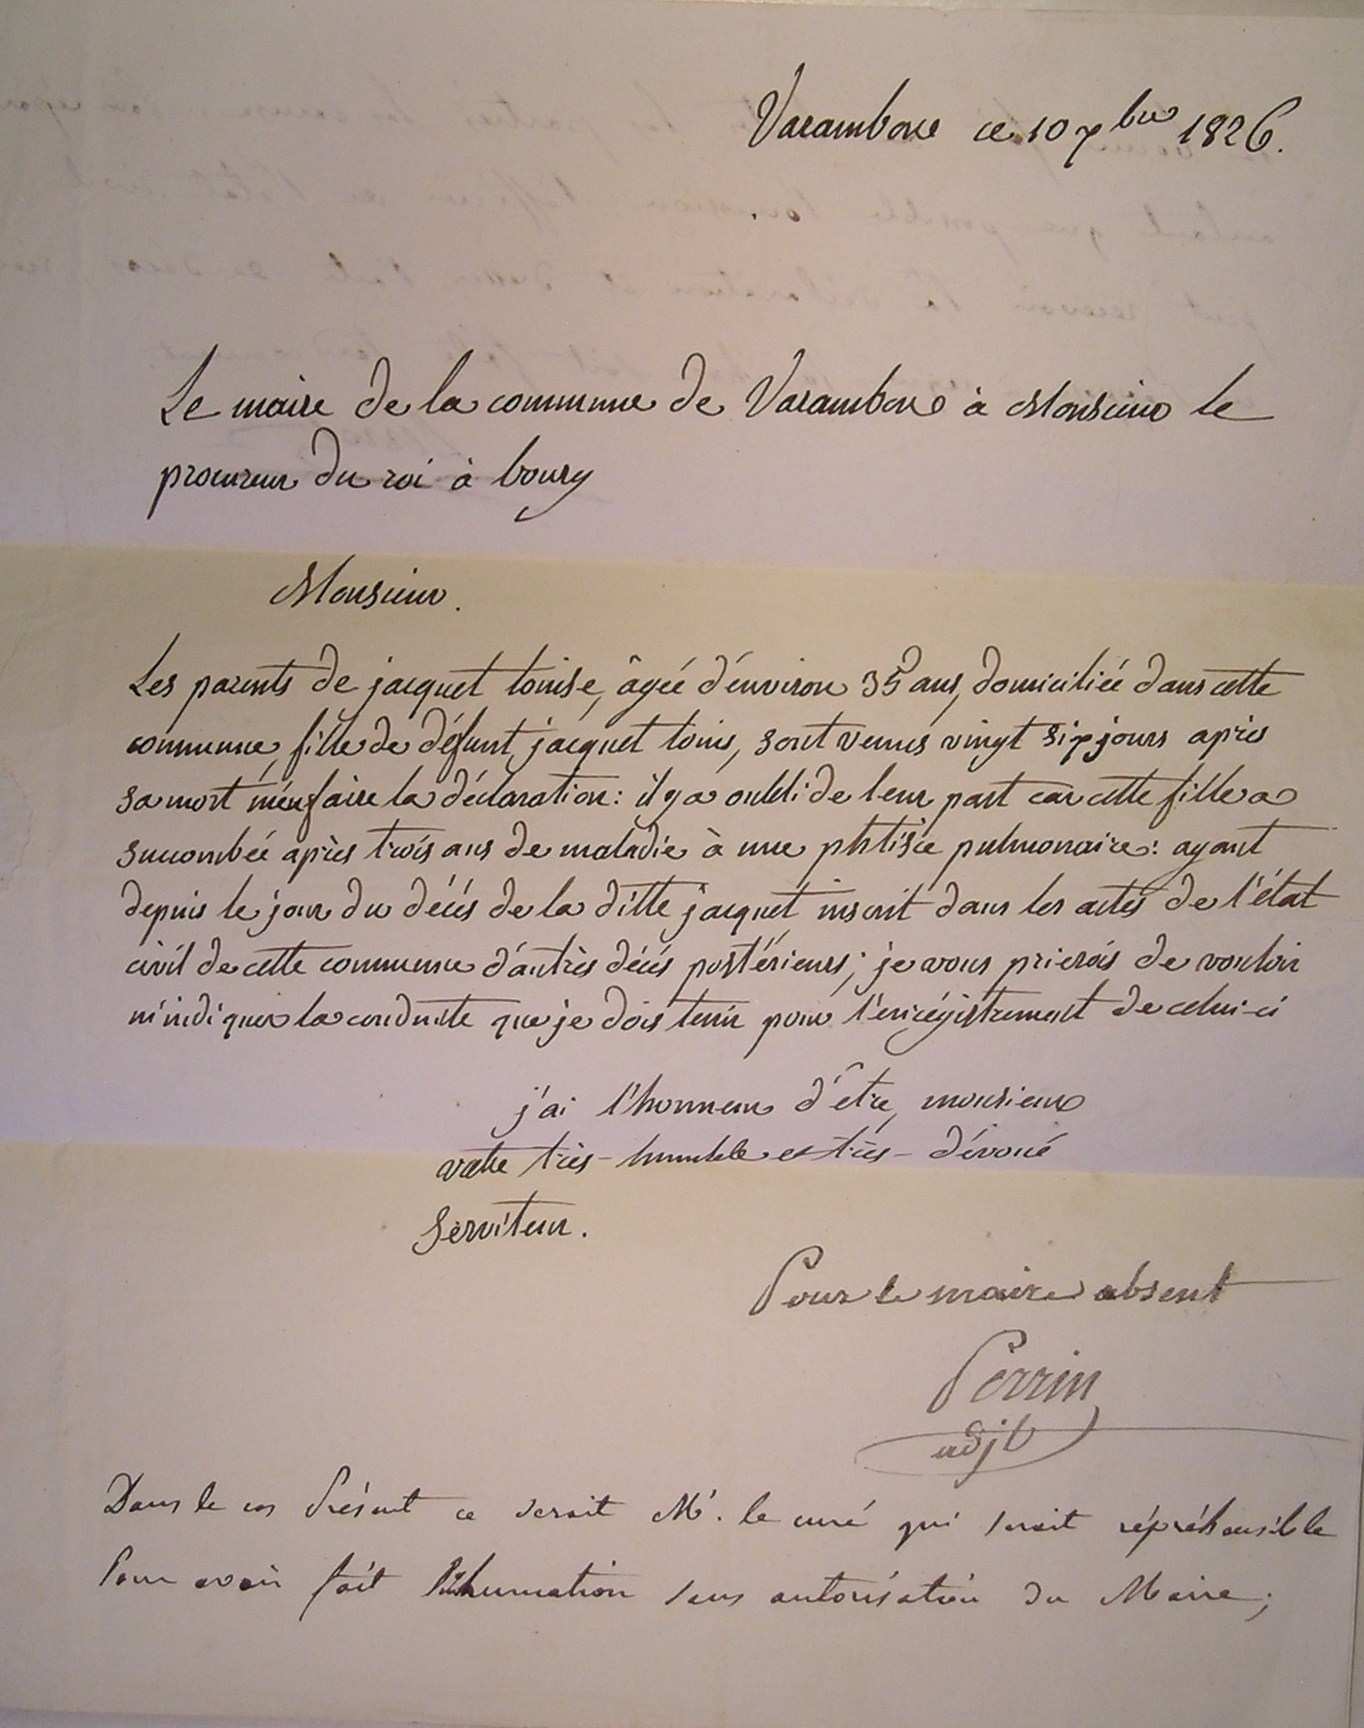 Varambon ce 10 7bre 1826.
Le maire de la commune de Varambon à Monsieur le
procureur du roi à bourg
Monsieur.
Les parents de jacquet louise, âgée d'énviron 35 ans, domiciliée dans cette
commune, fille de défunt jacquet louis, sont venus vingt six jours après
sa mort m'en faire la déclaration: il y a oubli de leur part car cette fille a
succombée après trois ans de maladie à une phtisie pulmonaire: ayant
depuis le jour du décés de la ditte jacquet inscrit dans les actes de l'état
civil de cette commune d'autrès décés postérieurs; je vous prierois de vouloir
m'indiquer la conduite que je dois tenir pour l'enrégistrement de celui-ci
j'ai l'honneur d'être, monsieur
votre très-humble et très-dévoué
Serviteur.
Pour le maire absent
Perrin
adjt
Dans le cas Présent ce serait Mr. le curé qui serait répréhensible
Pour avoir fait l'inhumation sans autorisation du Maire;